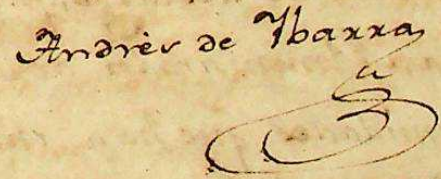 Andrès de Ibarra